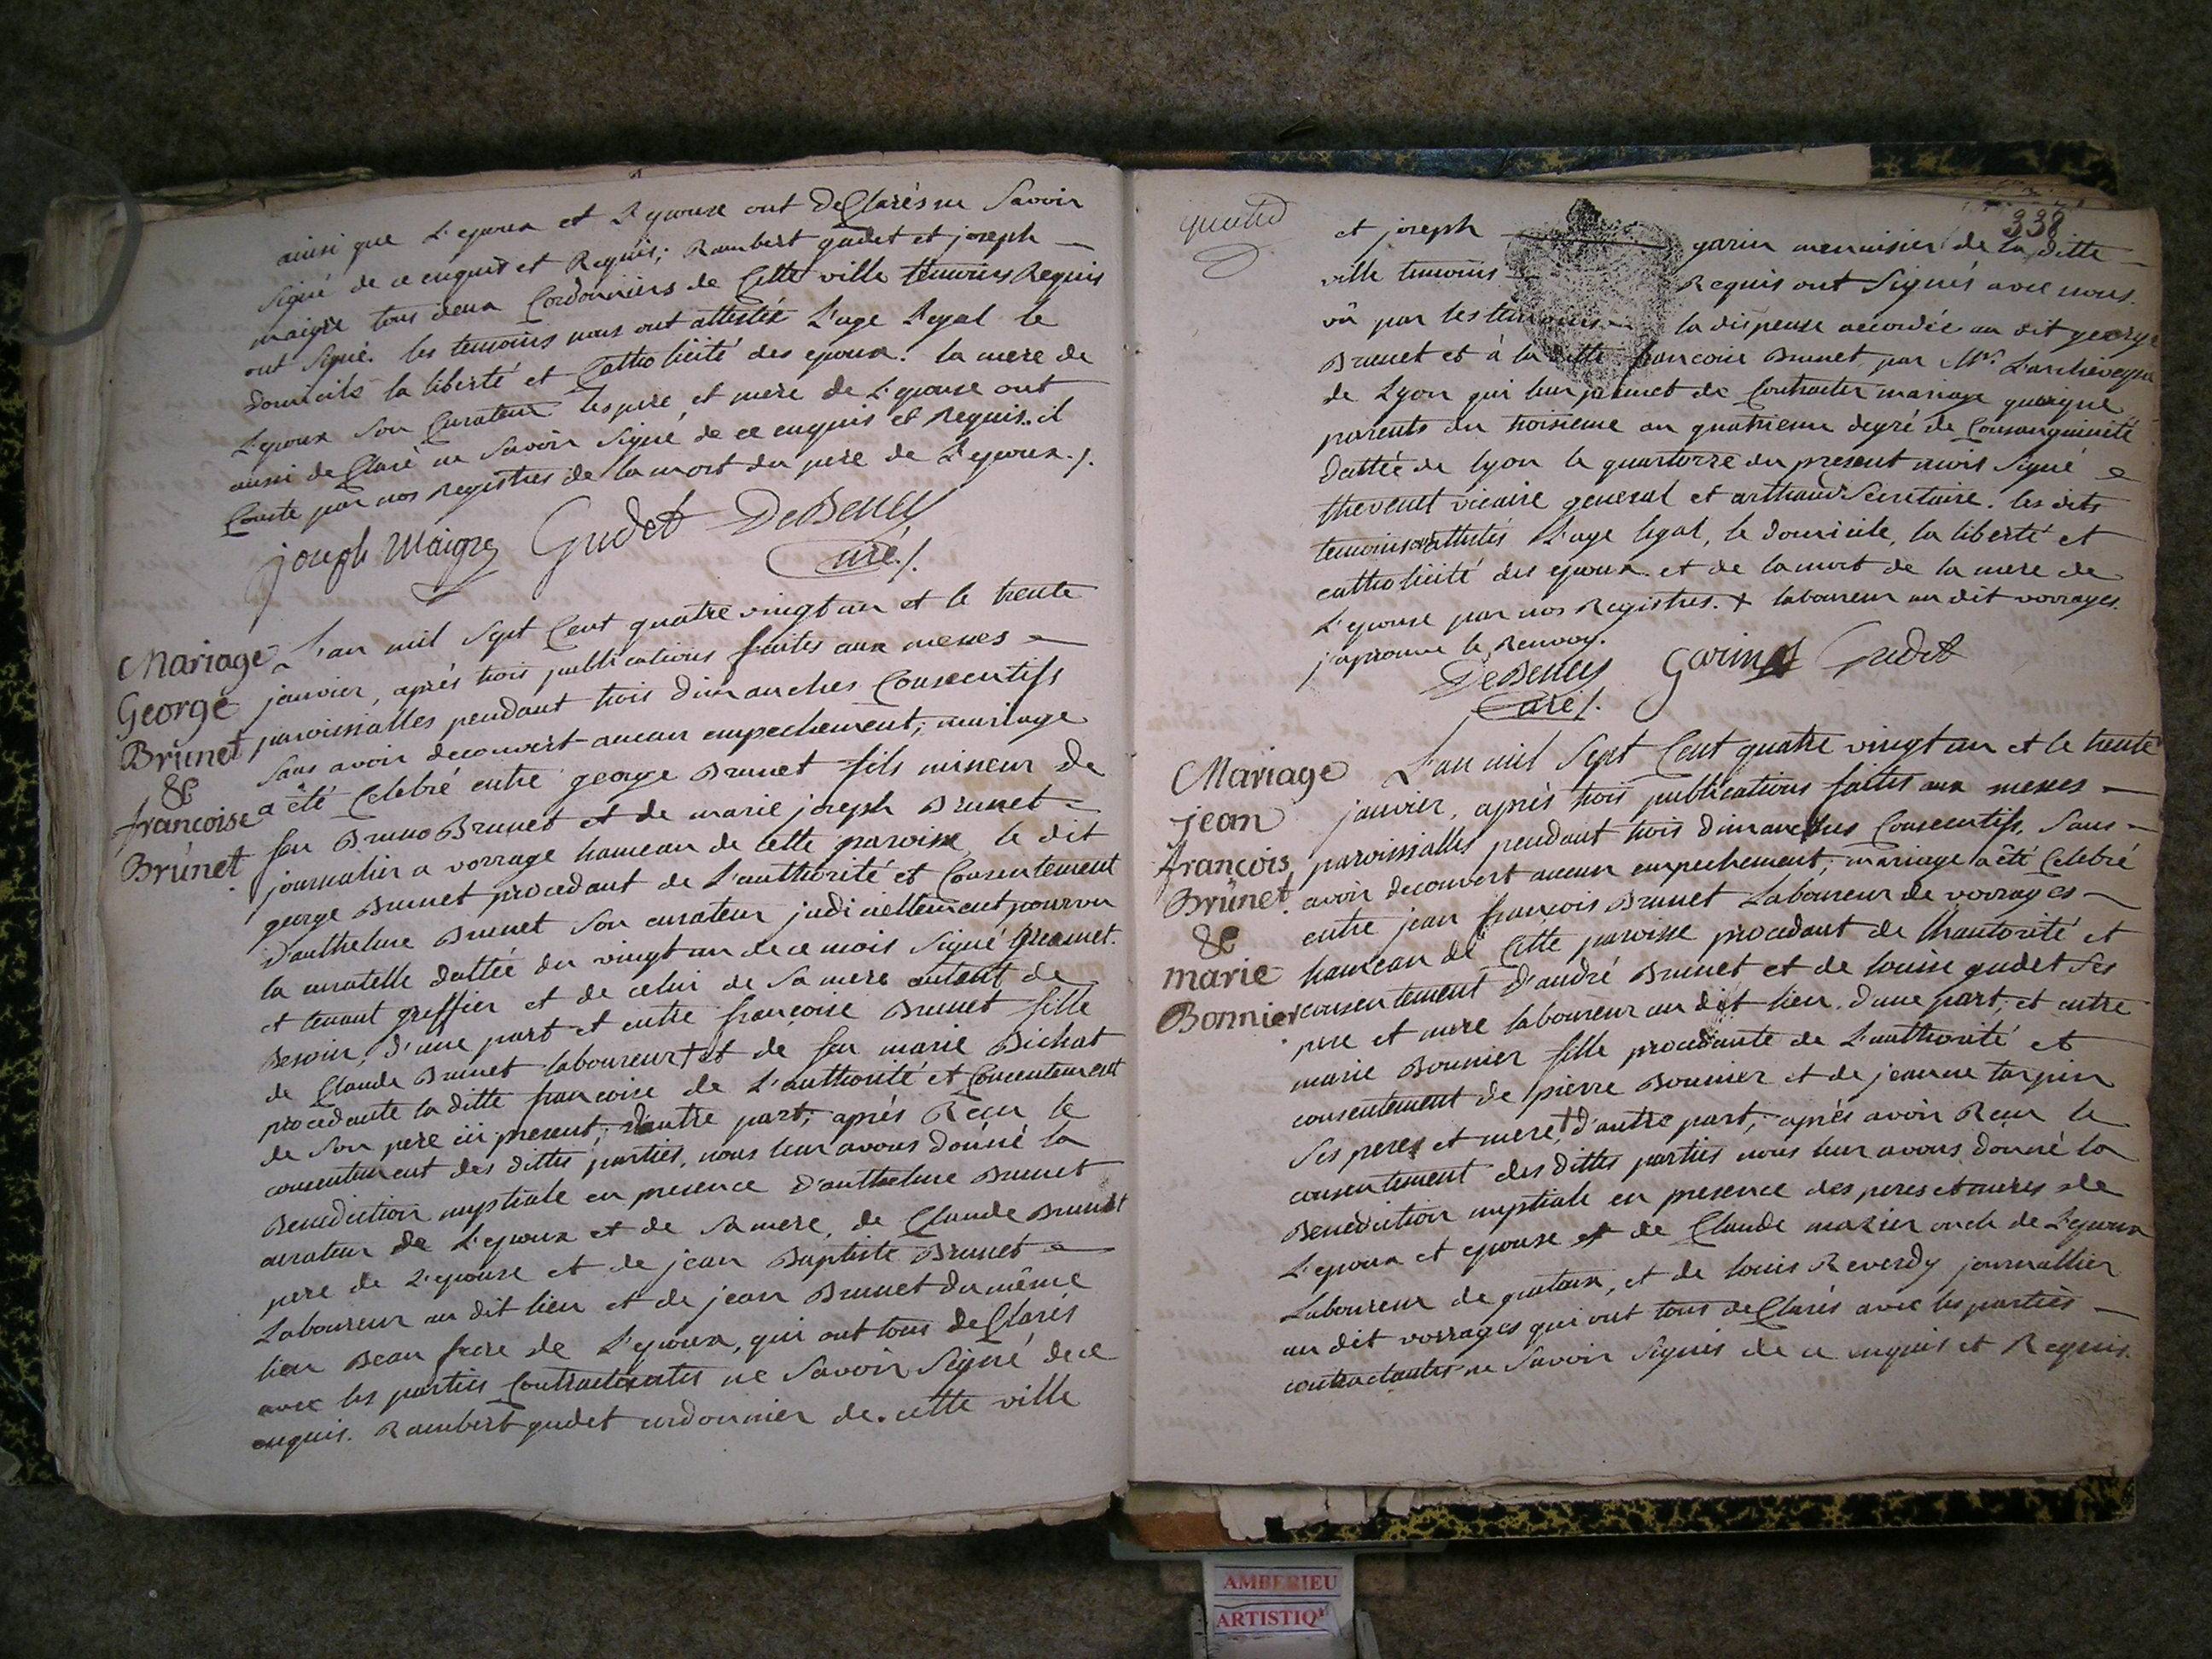 ainsi que L'epoux et L'epouse ont declarés ne Savoir
Signé de ce enquis et Requis; Rambert gudet et joseph
maigre tous deux Cordonniers de Cette ville temoins Requis
ont Signé. les temoins nous ont attestéx L'age Legal le
domicile la liberté et Catholicité des epoux. la mere de
L'epoux son Curateur les pere, et mere de L'epouse ont
aussi declaré ne Savoir Signé de ce enquis et Requis. il
Conste par nos Registres de la mort du pere de L'epoux./.
joseph Maigre Gudet DeBeney
Curé./.
Mariage
George
Brunet
&
francoise
Brunet.
L'an mil Sept Cent quatre vingt un et le trente
janvier, aprés trois publications faittes aux messes
paroissialles pendant trois dimanches Consecutifs
Sans avoir decouvert aucun empechement; mariage
a été Celebré entre george Brunet fils mineur de
feu Bruno Brunet et de marie joseph Brunet
journalier a vorrage hameau de cette paroisse le dit
george Brunet procedant de L'authorité et Consentement
d'anthelme Brunet Son curateur judiciellement pourvu
la curatelle dattée du vingt un de ce mois Signé
et tenant greffier et de celui de Sa mere autant de
Besoin, d'une part et entre françoise Brunet fille
de Claude Brunet laboureur + et de feu marie Bichat
procedante laditte francoise de L'authorité et Concentement
de Son pere ici present; d'autre part; aprés Reçu le
consentement des dittes parties, nous leur avons donné la
Benediction nuptiale en presence d'anthelme Brunet
curateur de L'epoux et de Sa mere, de Claude Brunet
pere de L'epouse et de jean Baptiste Brunet
Laboureur au dit lieu et de jean Brunet du même
lieu Beau frere de L'epoux, qui ont tous declarés
avec les parties Contractantes ne Savoir Signé de ce
enquis. Rambert gudet cordonnier de cette ville
338
et joseph garin menuisier de la ditte
ville temoins Requis ont Signés avec nous.
vû par les temoins la dispense accordée au dit george
Brunet et à la ditte francoise Brunet par Mgr. L'archeveque
de Lyon qui leur permet de Contracter mariage quoique
parents du troisieme au quatrieme degré de Consanguinité
dattée de lyon le quartorze du present mois Signé
thevenet vicaire general et arthaud Secretaire. les dits
temoins ont attestés L'age legal, le domicile, la liberté et
catholicité des epoux. et de la mort de la mere de
L'epouse par nos Registres. + laboureur au dit vorrages.
j'aprouve le Renvoy.
DeBeney Garin Gudet
Curé/.
Mariage
jean
francois
Brunet.
&
marie
Bonnier
L'an mil Sept Cent quatre vingt un et le trente
janvier, aprés trois publications faites aux messes
paroissialles pendant trois dimanches Consecutifs, Sans
avoir decouvert aucun empechement, mariage a été Celebré
entre jean françois Brunet Laboureur de vorrages
hameau de Cette paroisse procedant de Lhautorité et
consentement d'andré Brunet et de louise gudet Ses
pere et mere laboureur au dit lieu. d'une part, et entre
marie Bonnier fille procedante de L'authorité et
consentement de pierre Bonnier et de jeanne tarpin
Ses peres et mere, + d'autre part; aprés avoir Reçu le
consentement des dittes parties nous leur avons donné la
Benediction nuptiale en presence des peres et meres de
L'epoux et epouse et de Claude mazier oncle de L'epoux
Laboureur de et de louis Reverdy journallier
au dit vorrages qui ont tous declarés avec les parties
contractantes ne Savoir Signés de ce enquis et Requis.
AMBERIEU
ARTISTIQ